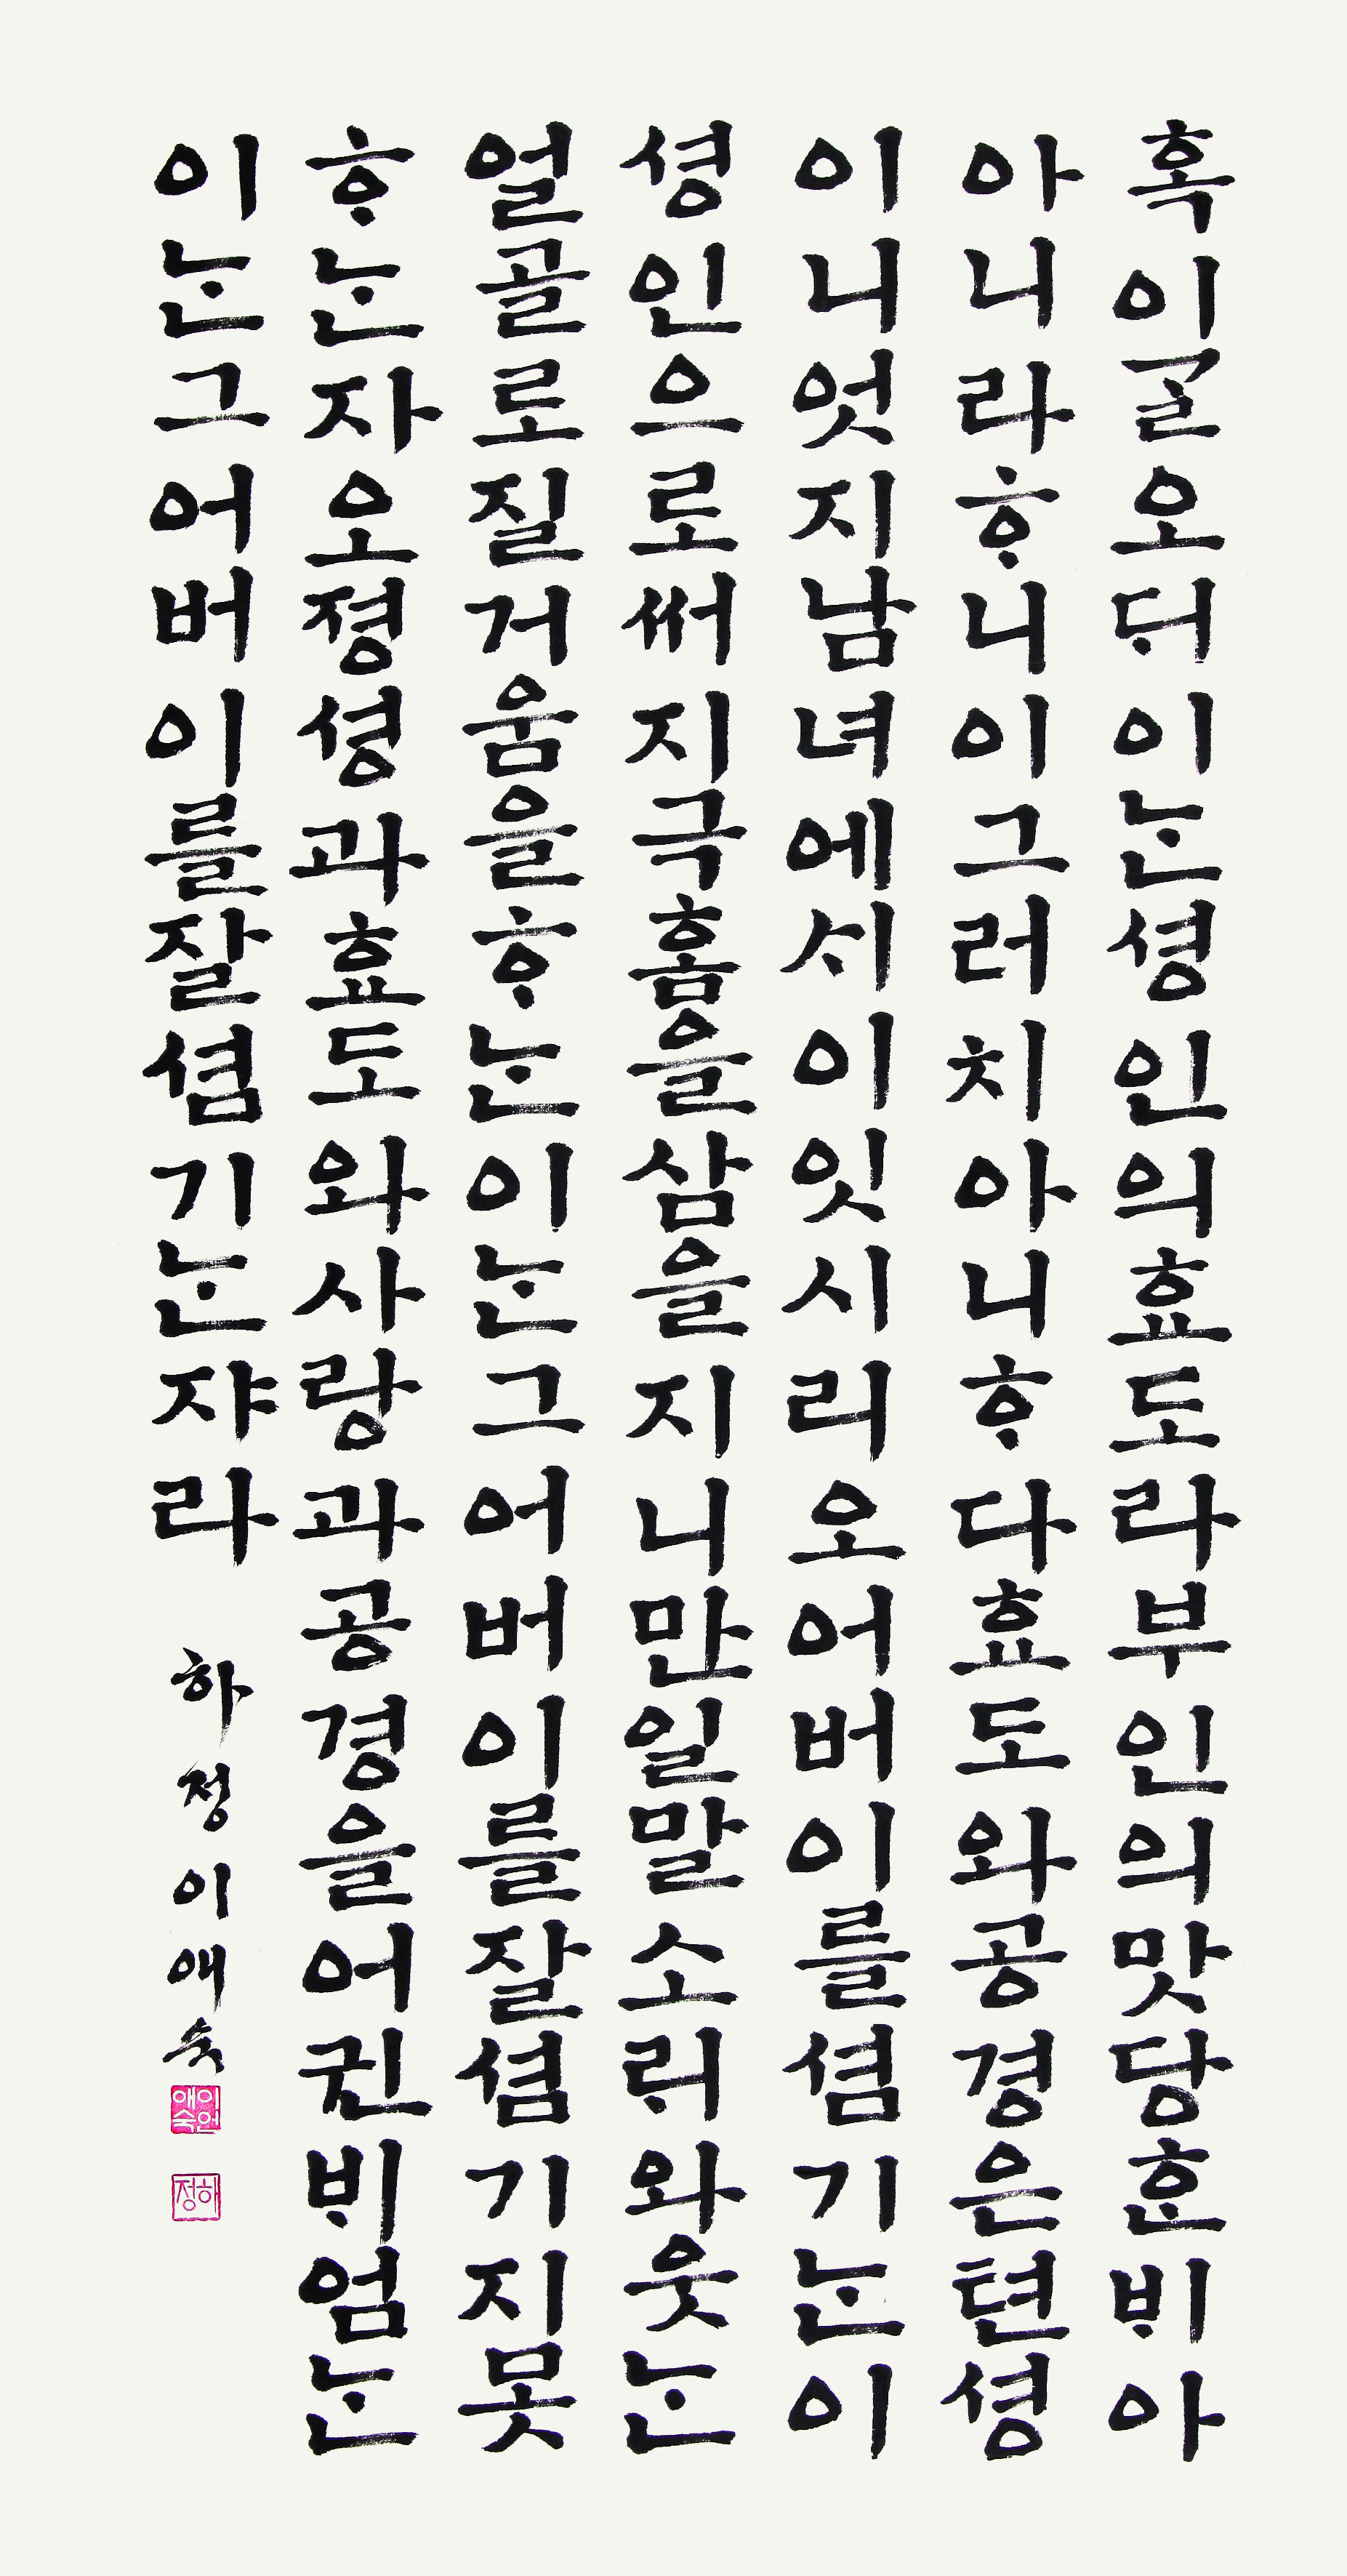 혹이ᄀᆞᆯ오ᄃᆡ이ᄂᆞᆫ셩인의효도라부인의맛당ᄒᆞᆫᄇᆡ아
아니라ᄒᆞ니이그러치아니ᄒᆞ다효도와공경은텬셩
이니엇지남녀에ᄉᆡ이잇시리오어버이를셤기ᄂᆞᆫ이
셩인으로써지극홈을삼을지니만일말소ᄅᆡ와웃ᄂᆞᆫ
얼골로질거움을ᄒᆞᄂᆞᆫ이ᄂᆞᆫ그어버이를잘셤기지못
ᄒᆞᄂᆞᆫ자오졍셩과효도와사랑과공경을어귄ᄇᆡ엄ᄂᆞᆫ
이ᄂᆞᆫ그어버이를잘셤기ᄂᆞᆫ쟈라
하정이애숙
이인애숙
하정